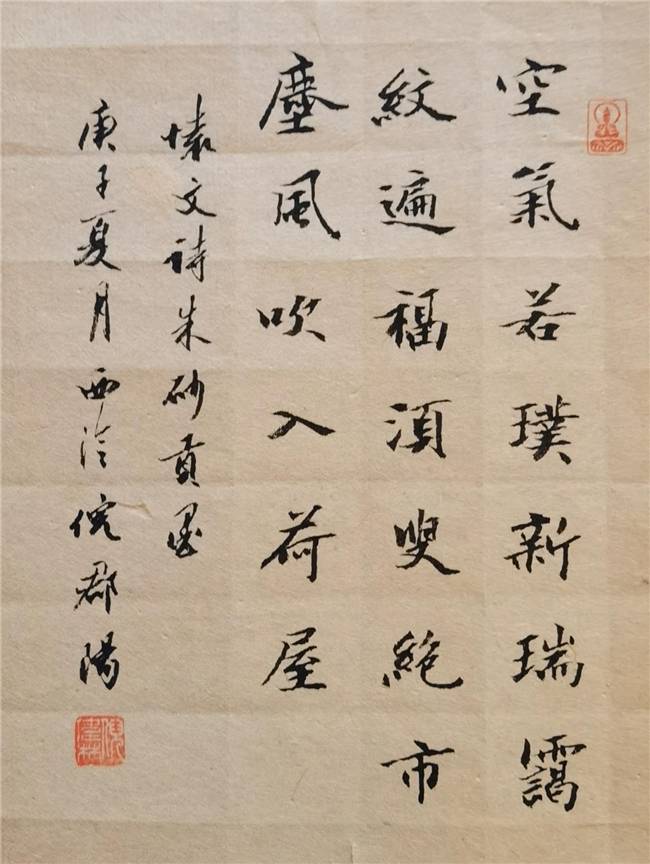 空氣若璞新瑞靄
紋遍福須臾絕市
塵風吹入荷屋
懷文詩朱砂貢墨
庚子夏月西泠倪郡陽